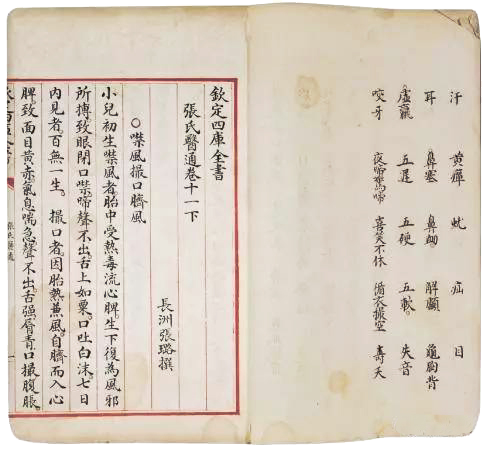 汗 黄癉 蚘 疝 目
耳 鼻塞 鼻衄 解顱 龜胸背
虛羸 五遲 五硬 五軟 失音
咬牙 夜啼驚啼 喜笑不休 循衣撮空 壽夭
欽定四庫全書
張氏醫通卷十一下
長洲張璐撰
○噤風撮口臍風
小兒初生噤風者胎中受熱毒流心脾生下復為風邪
所搏致眼閉口噤啼聲不出舌上如粟口吐白沫七日
內見者百無一生。撮口者因胎熱兼風自臍而入心
脾致面目黄赤氣息喘急聲不出舌强脣青口撮腹脹
張氏醫通